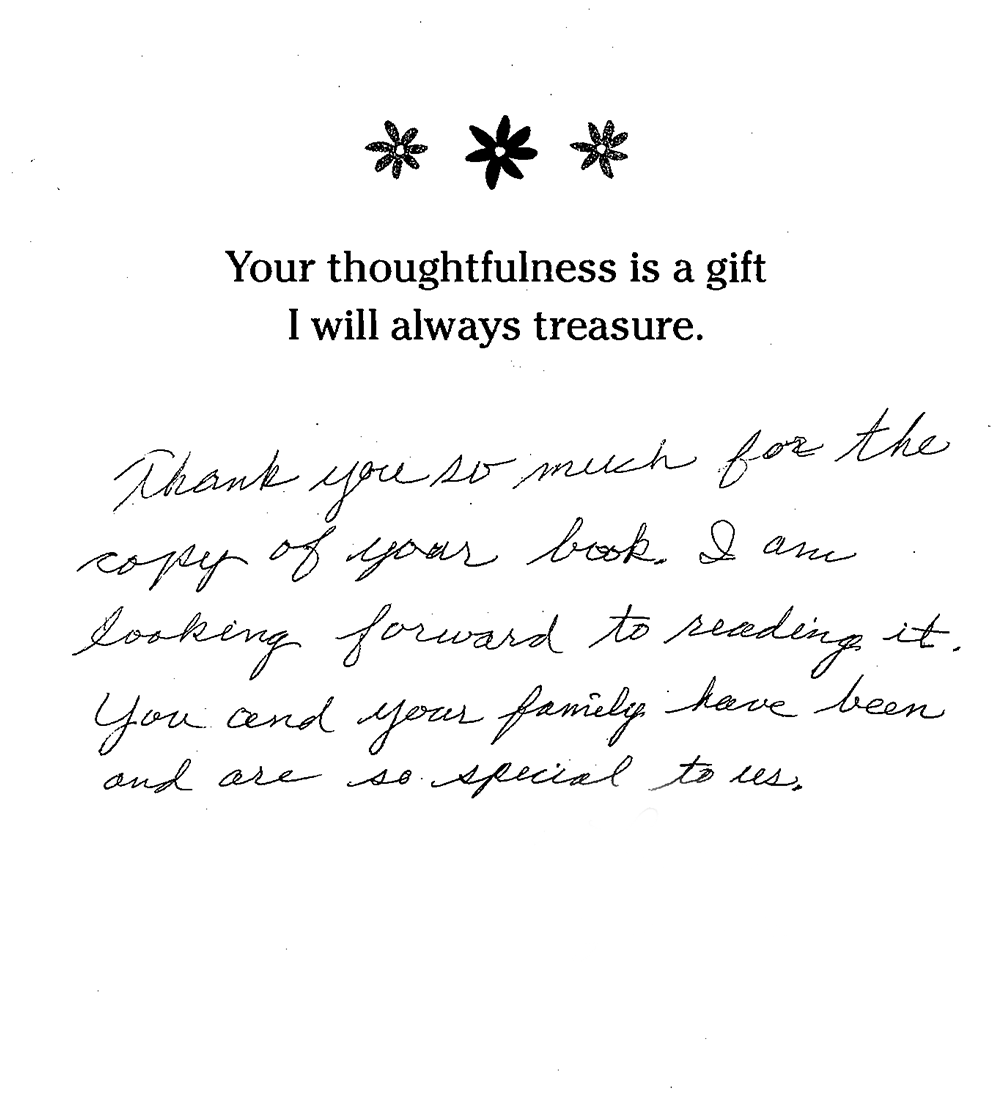 Your thoughtfulness is a gift
I will always treasure.
Thank you so much for the
copy of your book. I am
looking forward to reading it.
You and your family have been
and are so special to us.